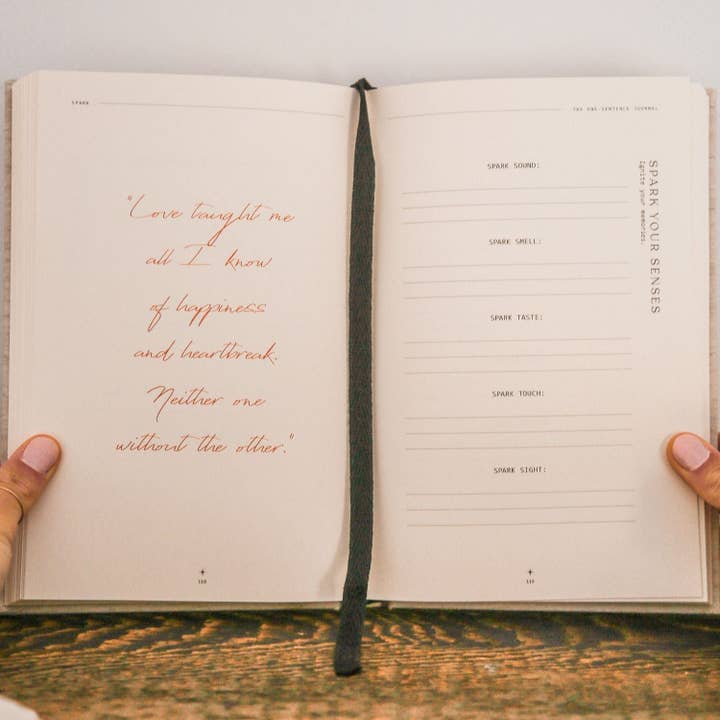 SPARK
"Love taught me
all I know
of happiness
and heartbreak.
Neither one
without the other."
THE ONE-SENTENCE JOURNAL
SPARK YOUR SENSES
Ignite your memories.
SPARK SOUND:
SPARK SMELL:
SPARK TASTE:
SPARK TOUCH:
SPARK SIGHT: